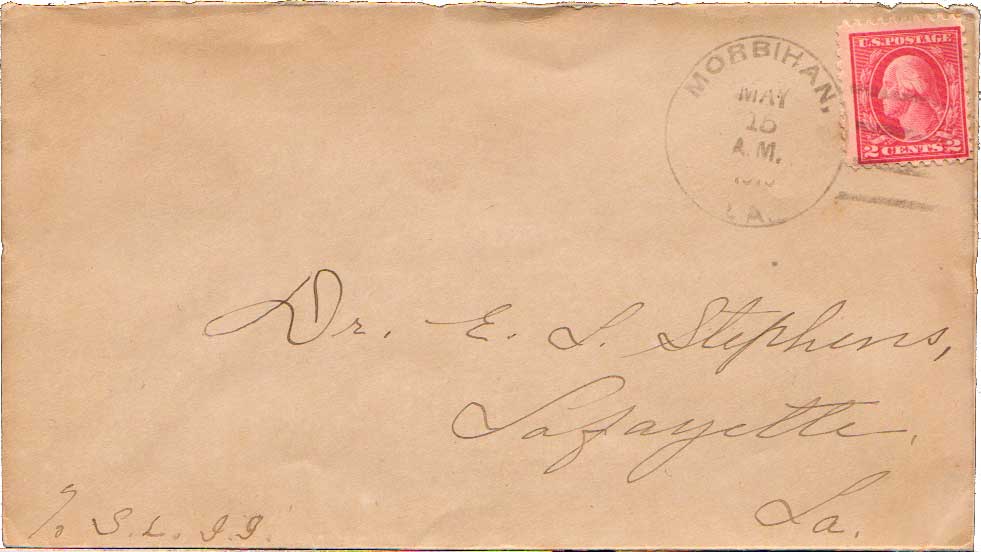 MORBIHAN,
MAY
15
A.M.
LA.
U.S. POSTAGE
2 CENTS 2
Dr. E. L. Stephens,
Lafayette,
La.
℅ S. L. I. I.